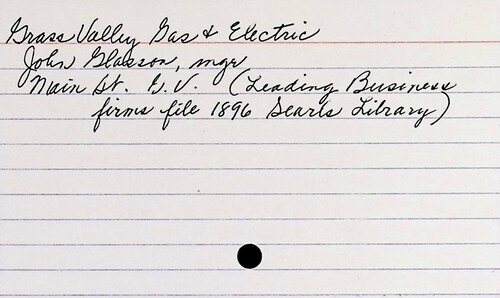 Grass Valley Gas & Electric
John Glasson, mgr
Main St. G.V. (Leading Business
firms file 1896 Searls Library)